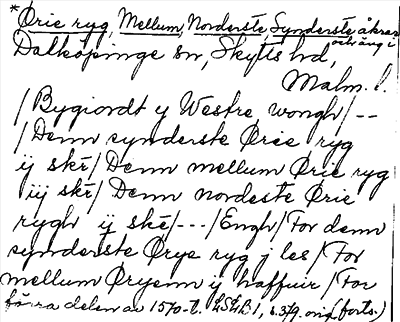 *Ørie ryg, Mellum, Norderste, Synderste, åkrar
och äng i
Dalköpinge sn, Skytts hd,
Malm. l.
/Bygiordt y Westre wongh/--
/Denn synderste Ørie ryg
ij skē/Denn mellum Ørie ryg
iij skē/Denn nordeste Ørie
rygh ij skē/---/Engh/For denn
synderste Ørye ryg j les/For
mellum Øryenn ij haffuir/For
förra delen av 1570-t. LSLB 1, s. 379. orig (forts.)